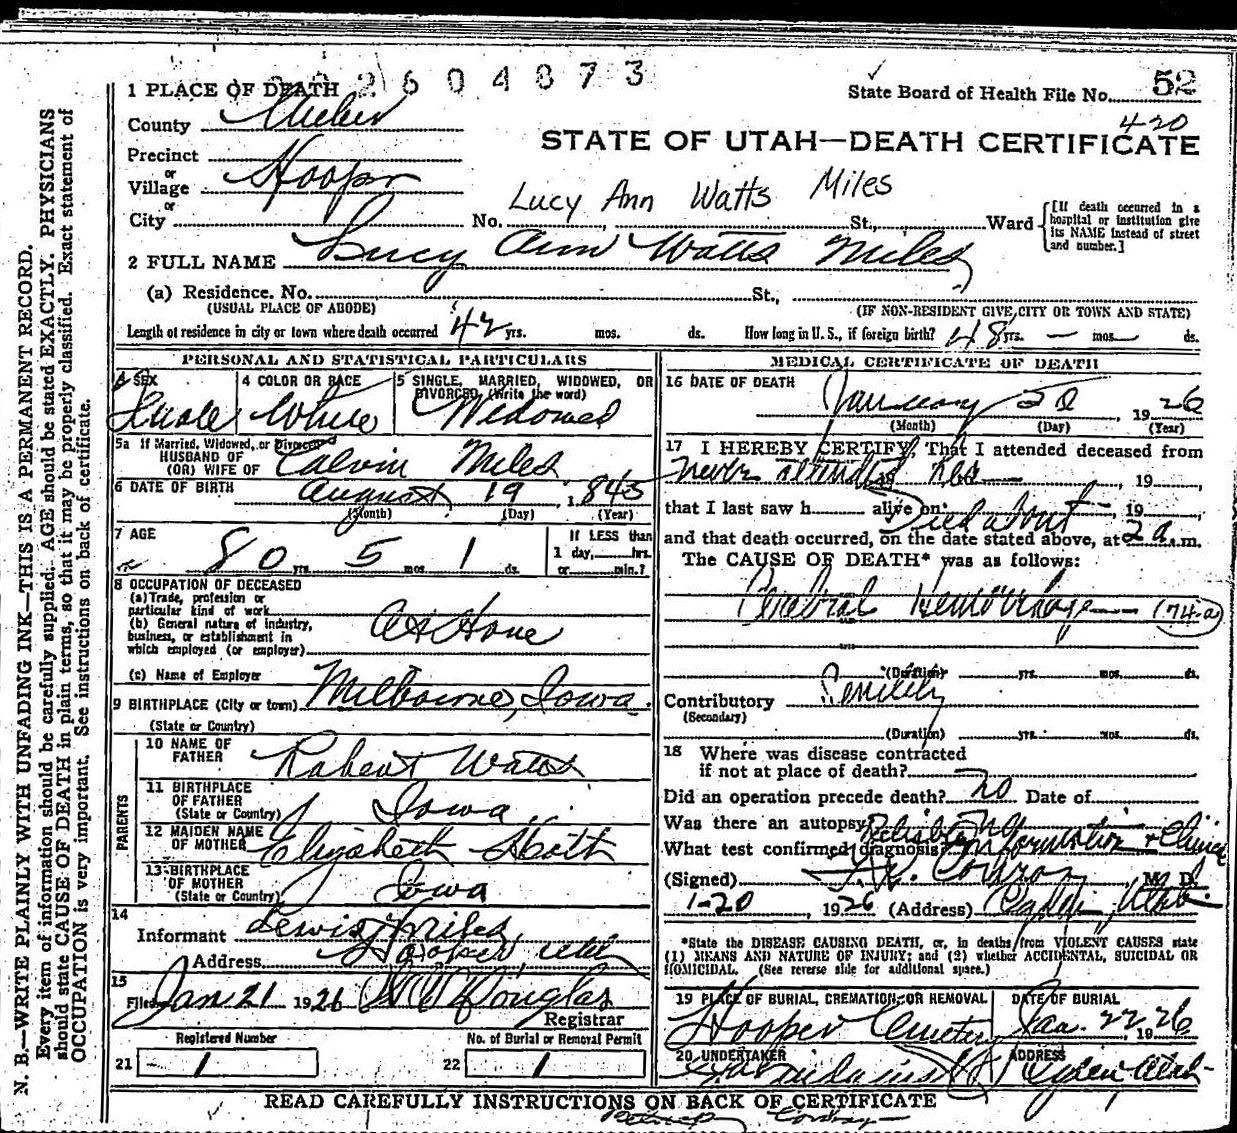 N. B.—WRITE PLAINLY WITH UNFADING INK—THIS IS A PERMANENT RECORD.
Every item of information should be carefully supplied. AGE should be stated EXACTLY. PHYSICIANS
should state CAUSE OF DEATH in plain terms, so that it may be properly classified. Exact statement of
OCCUPATION is very important. See instructions on back of certificate.
2604873
1 PLACE OF DEATH
State Board of Health File No. 52
420
County Weber
STATE OF UTAH—DEATH CERTIFICATE
Precinct
or
Village Hooper
or
Lucy Ann Watts Miles
City No. St., Ward
[If death occurred in a
hospital or institution give
its NAME instead of street
and number.]
2 FULL NAME Lucy Ann Watts Miles
(a) Residence. No. St.,
(USUAL PLACE OF ABODE) (IF NON-RESIDENT GIVE CITY OR TOWN AND STATE)
Length of residence in city or town where death occurred 42 yrs. mos. ds. How long in U. S., if foreign birth? 48 yrs. — mos. — ds.
PERSONAL AND STATISTICAL PARTICULARS
SEX
4 COLOR OR RACE White
5 SINGLE, MARRIED, WIDOWED, OR
DIVORCED (Write the word)
Widowed
5a If Married, Widowed, or Divorced
HUSBAND OF
(OR) WIFE OF Calvin Miles
6 DATE OF BIRTH August 19, 1845
(Month) (Day) (Year)
7 AGE 80 yrs. 5 mos. 1 ds.
If LESS than
1 day, hrs.
or min.?
8 OCCUPATION OF DECEASED
(a) Trade, profession or
particular kind of work
(b) General nature of industry,
business, or establishment in
which employed (or employer)
At Home
(c) Name of Employer
9 BIRTHPLACE (City or town) Milbourne, Iowa.
(State or Country)
PARENTS
10 NAME OF
FATHER Robert Watts
11 BIRTHPLACE
OF FATHER
(State or Country) Iowa
12 MAIDEN NAME
OF MOTHER Elizabeth
13 BIRTHPLACE
OF MOTHER
(State or Country) Iowa
14
Informant Lewis Miles
Address Hooper Utah
15
Filed Jan. 21 1926 Douglas
Registrar
Registered Number
21 1
No. of Burial or Removal Permit
22 1
MEDICAL CERTIFICATE OF DEATH
16 DATE OF DEATH
January 20, 1926
(Month) (Day) (Year)
17 I HEREBY CERTIFY, That I attended deceased from
never attended her , 19
that I last saw h alive on , 19
Died about
and that death occurred, on the date stated above, at 2 a.m.
The CAUSE OF DEATH* was as follows:
Cerebral Hemorrhage — (74-a)
(Duration) yrs. mos. ds.
Contributory Senility
(Secondary)
(Duration) yrs. mos. ds.
18 Where was disease contracted
if not at place of death?
Did an operation precede death? no Date of
Was there an autopsy
What test confirmed diagnosis? Reliable Information & Clinical
(Signed) M. D.
1-20, 1926 (Address) Ogden, Utah.
*State the DISEASE CAUSING DEATH, or, in deaths from VIOLENT CAUSES state
(1) MEANS AND NATURE OF INJURY; and (2) whether ACCIDENTAL, SUICIDAL OR
HOMICIDAL. (See reverse side for additional space.)
19 PLACE OF BURIAL, CREMATION, OR REMOVAL
Hooper Cemetery
DATE OF BURIAL
Jan. 22 1926
20 UNDERTAKER
ADDRESS
Ogden Utah
READ CAREFULLY INSTRUCTIONS ON BACK OF CERTIFICATE